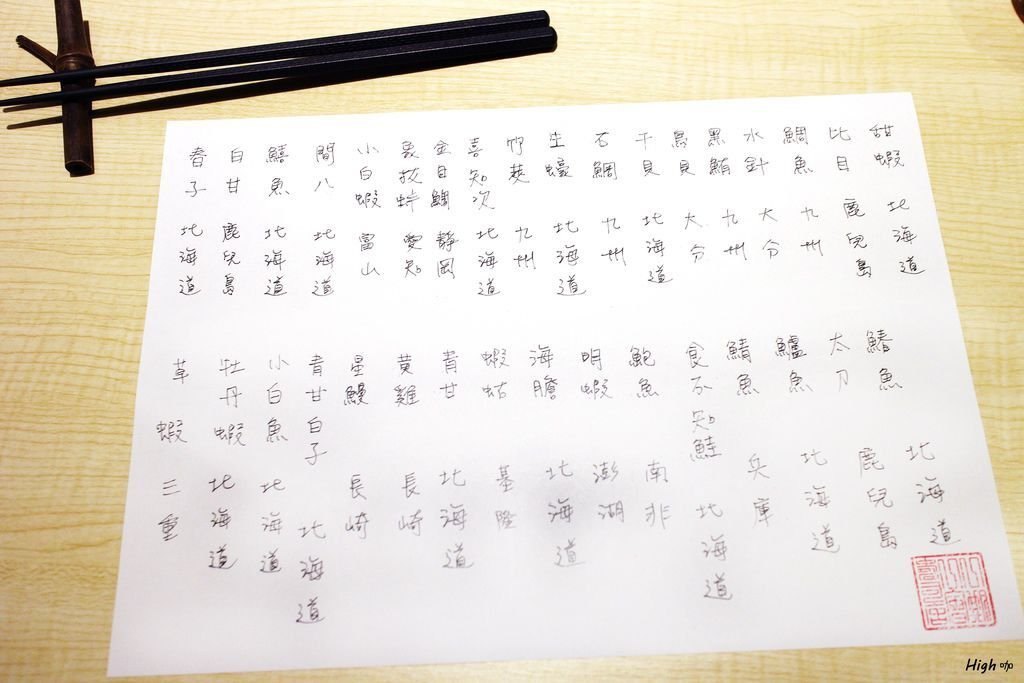 甜蝦 北海道
比目 鹿兒島
鯛魚 九州
水針 大分
黑鮪 九州
鳥貝 大分
干貝 北海道
石鯛 九州
生蠔 北海道
竹筴 九州
喜知次 北海道
金目鯛 靜岡
象拔蚌 愛知
小白蝦 富山
間八 北海道
鱚魚 北海道
白甘 鹿兒島
春子 北海道
鰆魚 北海道
太刀 鹿兒島
鱸魚 北海道
鯖魚 兵庫
食不知鮭 北海道
鮑魚 南非
明蝦 澎湖
海膽 北海道
蝦蛄 基隆
青甘 北海道
黃雞 長崎
星鰻 長崎
青甘白子 北海道
小白魚 北海道
牡丹蝦 北海道
草蝦 三重
High